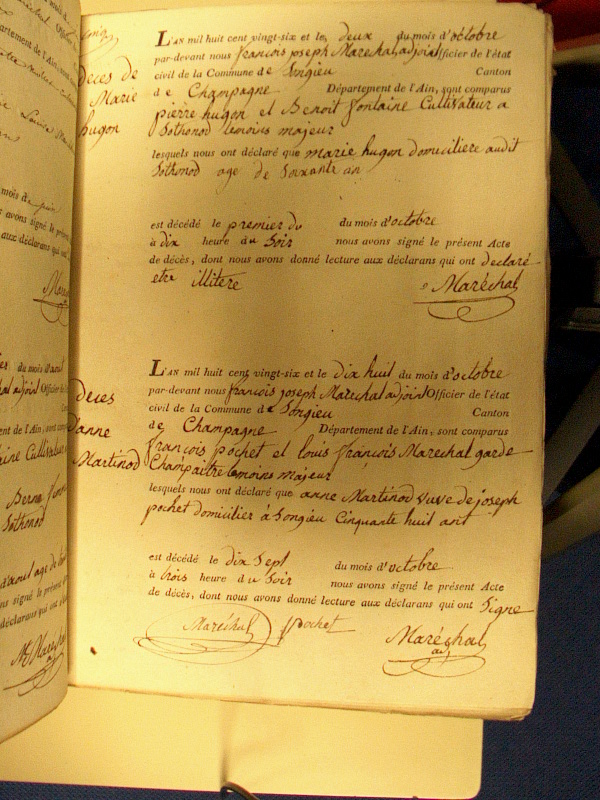 Deces de
Marie
hugon
L'AN mil huit cent vingt-six et le deux du mois d'octobre
par-devant nous françois joseph Marechal, adjoint Officier de l'état
civil de la Commune de Songieu Canton
de Champagne Département de l'Ain, sont comparus
pierre hugon et Benoit fontaine Cultivateur a
Sothonod temoins majeur
lesquels nous ont déclaré que marie hugon domiciliere audit
Sothonod age de Soixante an
est décédé le premier du du mois d'octobre
à dix heure du Soir nous avons signé le présent Acte
de décès, dont nous avons donné lecture aux déclarans qui ont declaré
etre illitere
Maréchal
deces
d'anne
Martinod
L'AN mil huit cent vingt-six et le dix huit du mois d'octobre
par-devant nous françois joseph Marechal adjoint Officier de l'état
civil de la Commune de Songieu Canton
de Champagne Département de l'Ain, sont comparus
françois pochet et louis françois Marechal garde
Champaitre temoins majeur
lesquels nous ont déclaré que anne Martinod vuve de joseph
pochet domicilier à Songieu Cinquante huit ant
est décédé le dix Sept du mois d'octobre
à trois heure du Soir nous avons signé le présent Acte
de décès, dont nous avons donné lecture aux déclarans qui ont Signe
Maréchal pochet Maréchal
adj